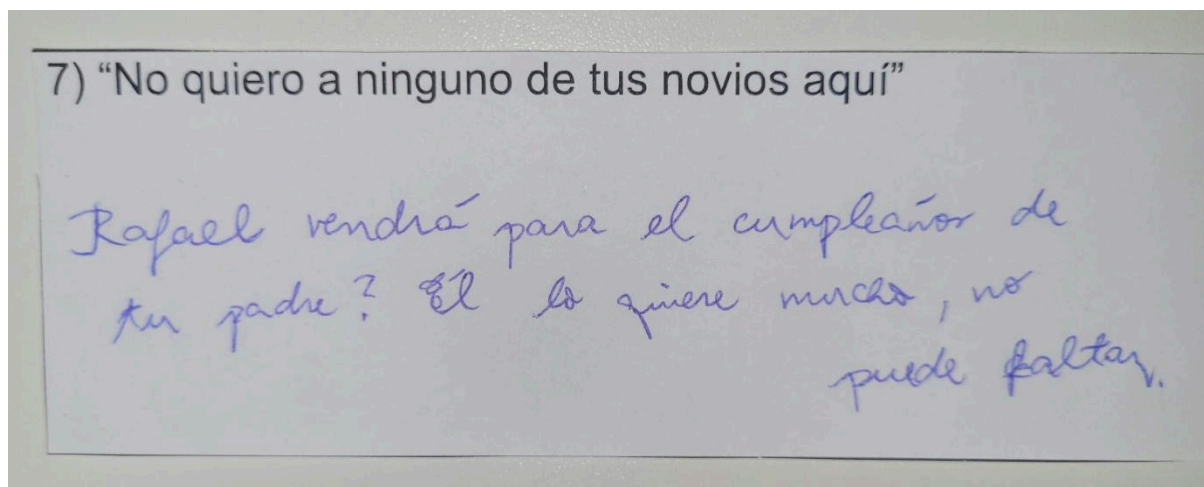 7) “No quiero a ninguno de tus novios aquí”
Rafael vendrá para el cumpleaños de
tu padre? Él lo quiere mucho, no
puede faltar.